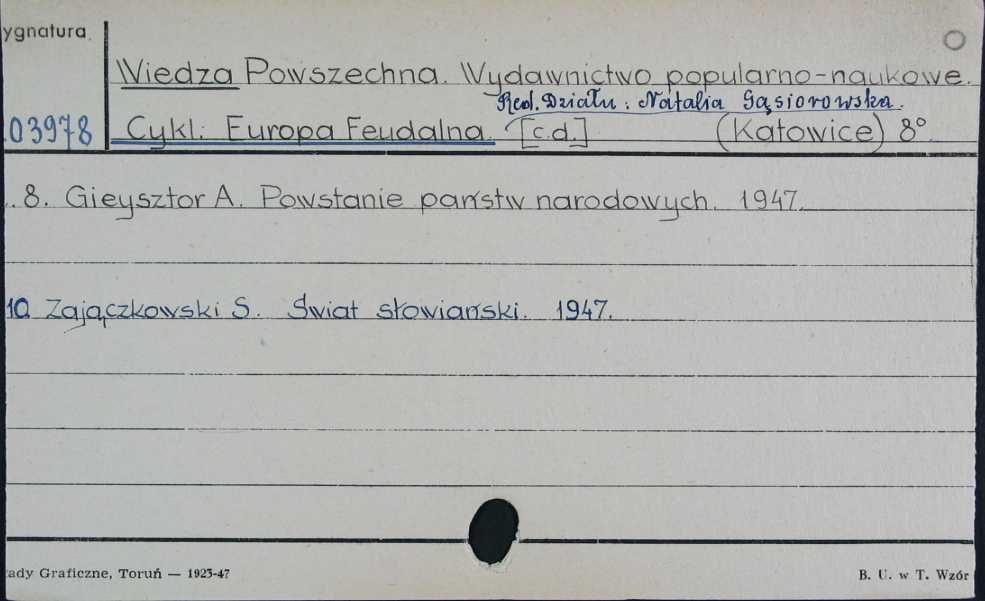 ygnatura
Wiedza Powszechna. Wydawnictwo popularno-naukowe.
Red. Działu: Natalia Gąsiorowska.
03978 Cykl: Europa Feudalna. [c.d.] (Katowice) 8°
8. Gieysztor A. Powstanie państw narodowych. 1947.
10 Zajączkowski S. Świat słowiański. 1947.
ady Graficzne, Toruń — 1923-47 B. U. w T. Wzór